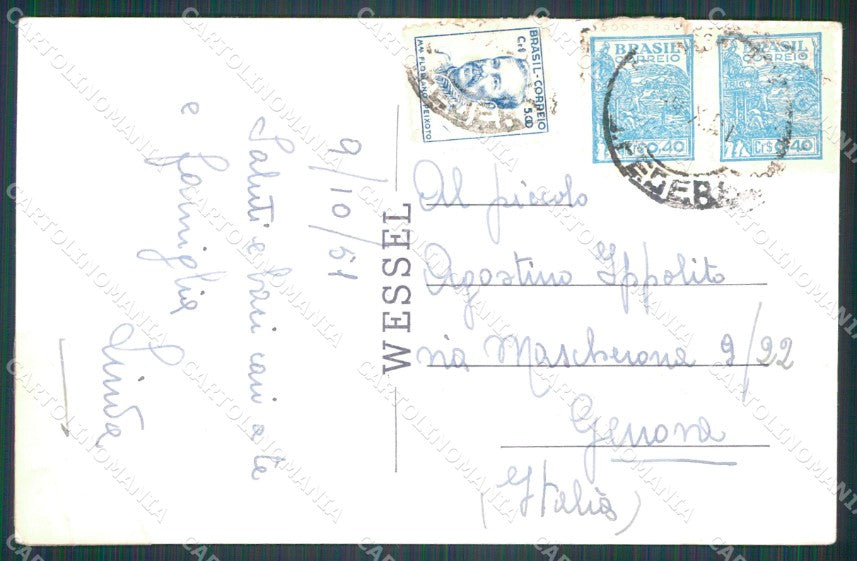 9/10/51
Saluti e baci cari a te
e famiglia
Linda
WESSEL
BRASIL-CORREIO
Cr$ 5,00
MAL FLORIANO PEIXOTO
BRASIL
CORREIO
Cr$ 0,40
BRASIL
CORREIO
Cr$ 0,40
Al piccolo
Agostino Ippolito
via Mascherona 9/22
Genova
(Italia)
CARTOLINOMANIA